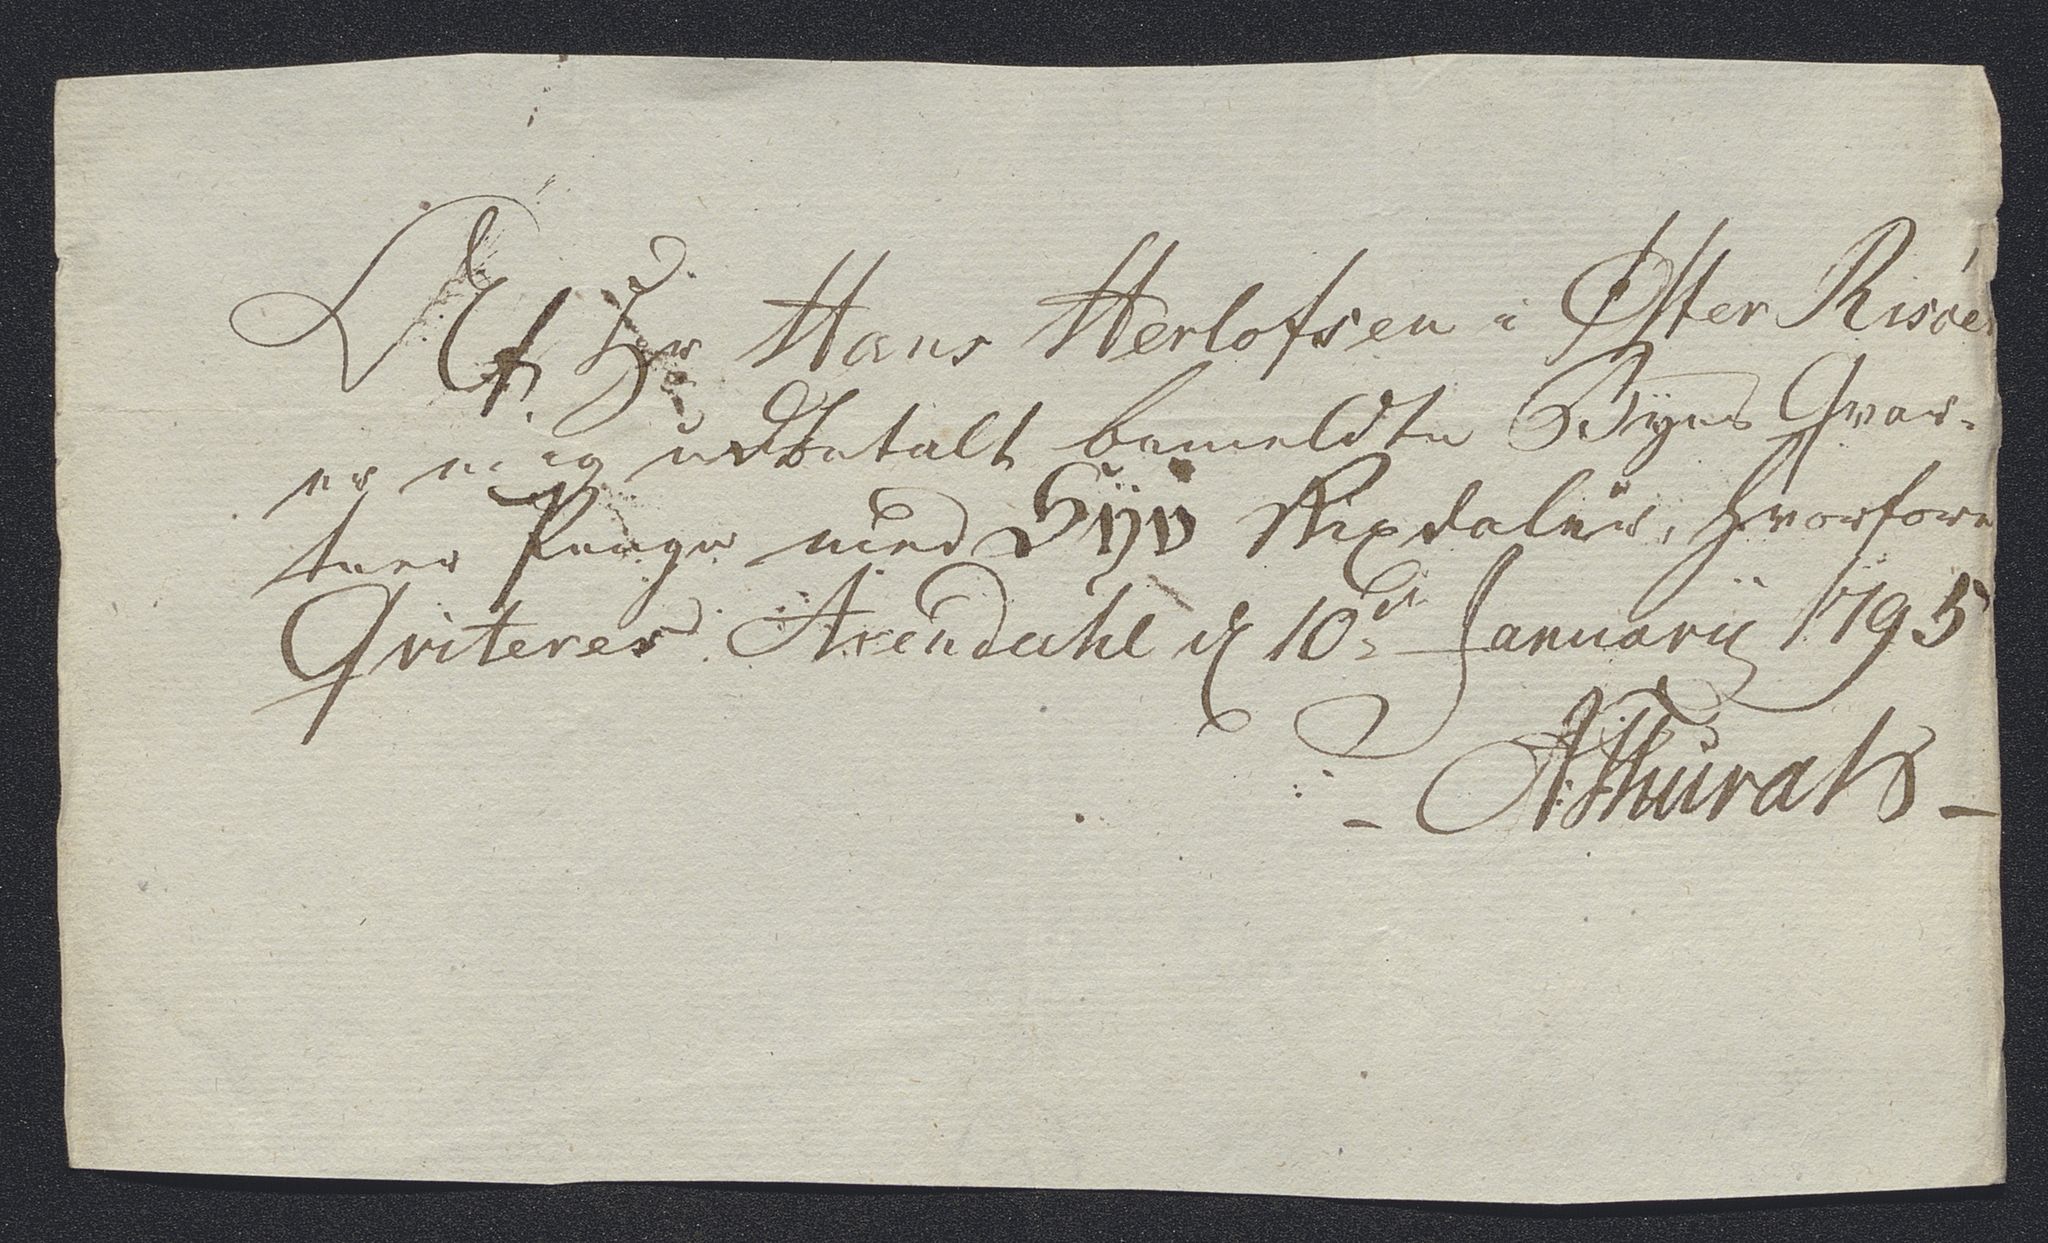 Af Hr Hans Herlofsen i Øster Risøer
er mig udbetalt bemeldte Byes Qvar-
teer Penge med Syv Rixdaler, hvorfore
Qviteres. Arendahl d 10de Januarii 1795
- AThurah -